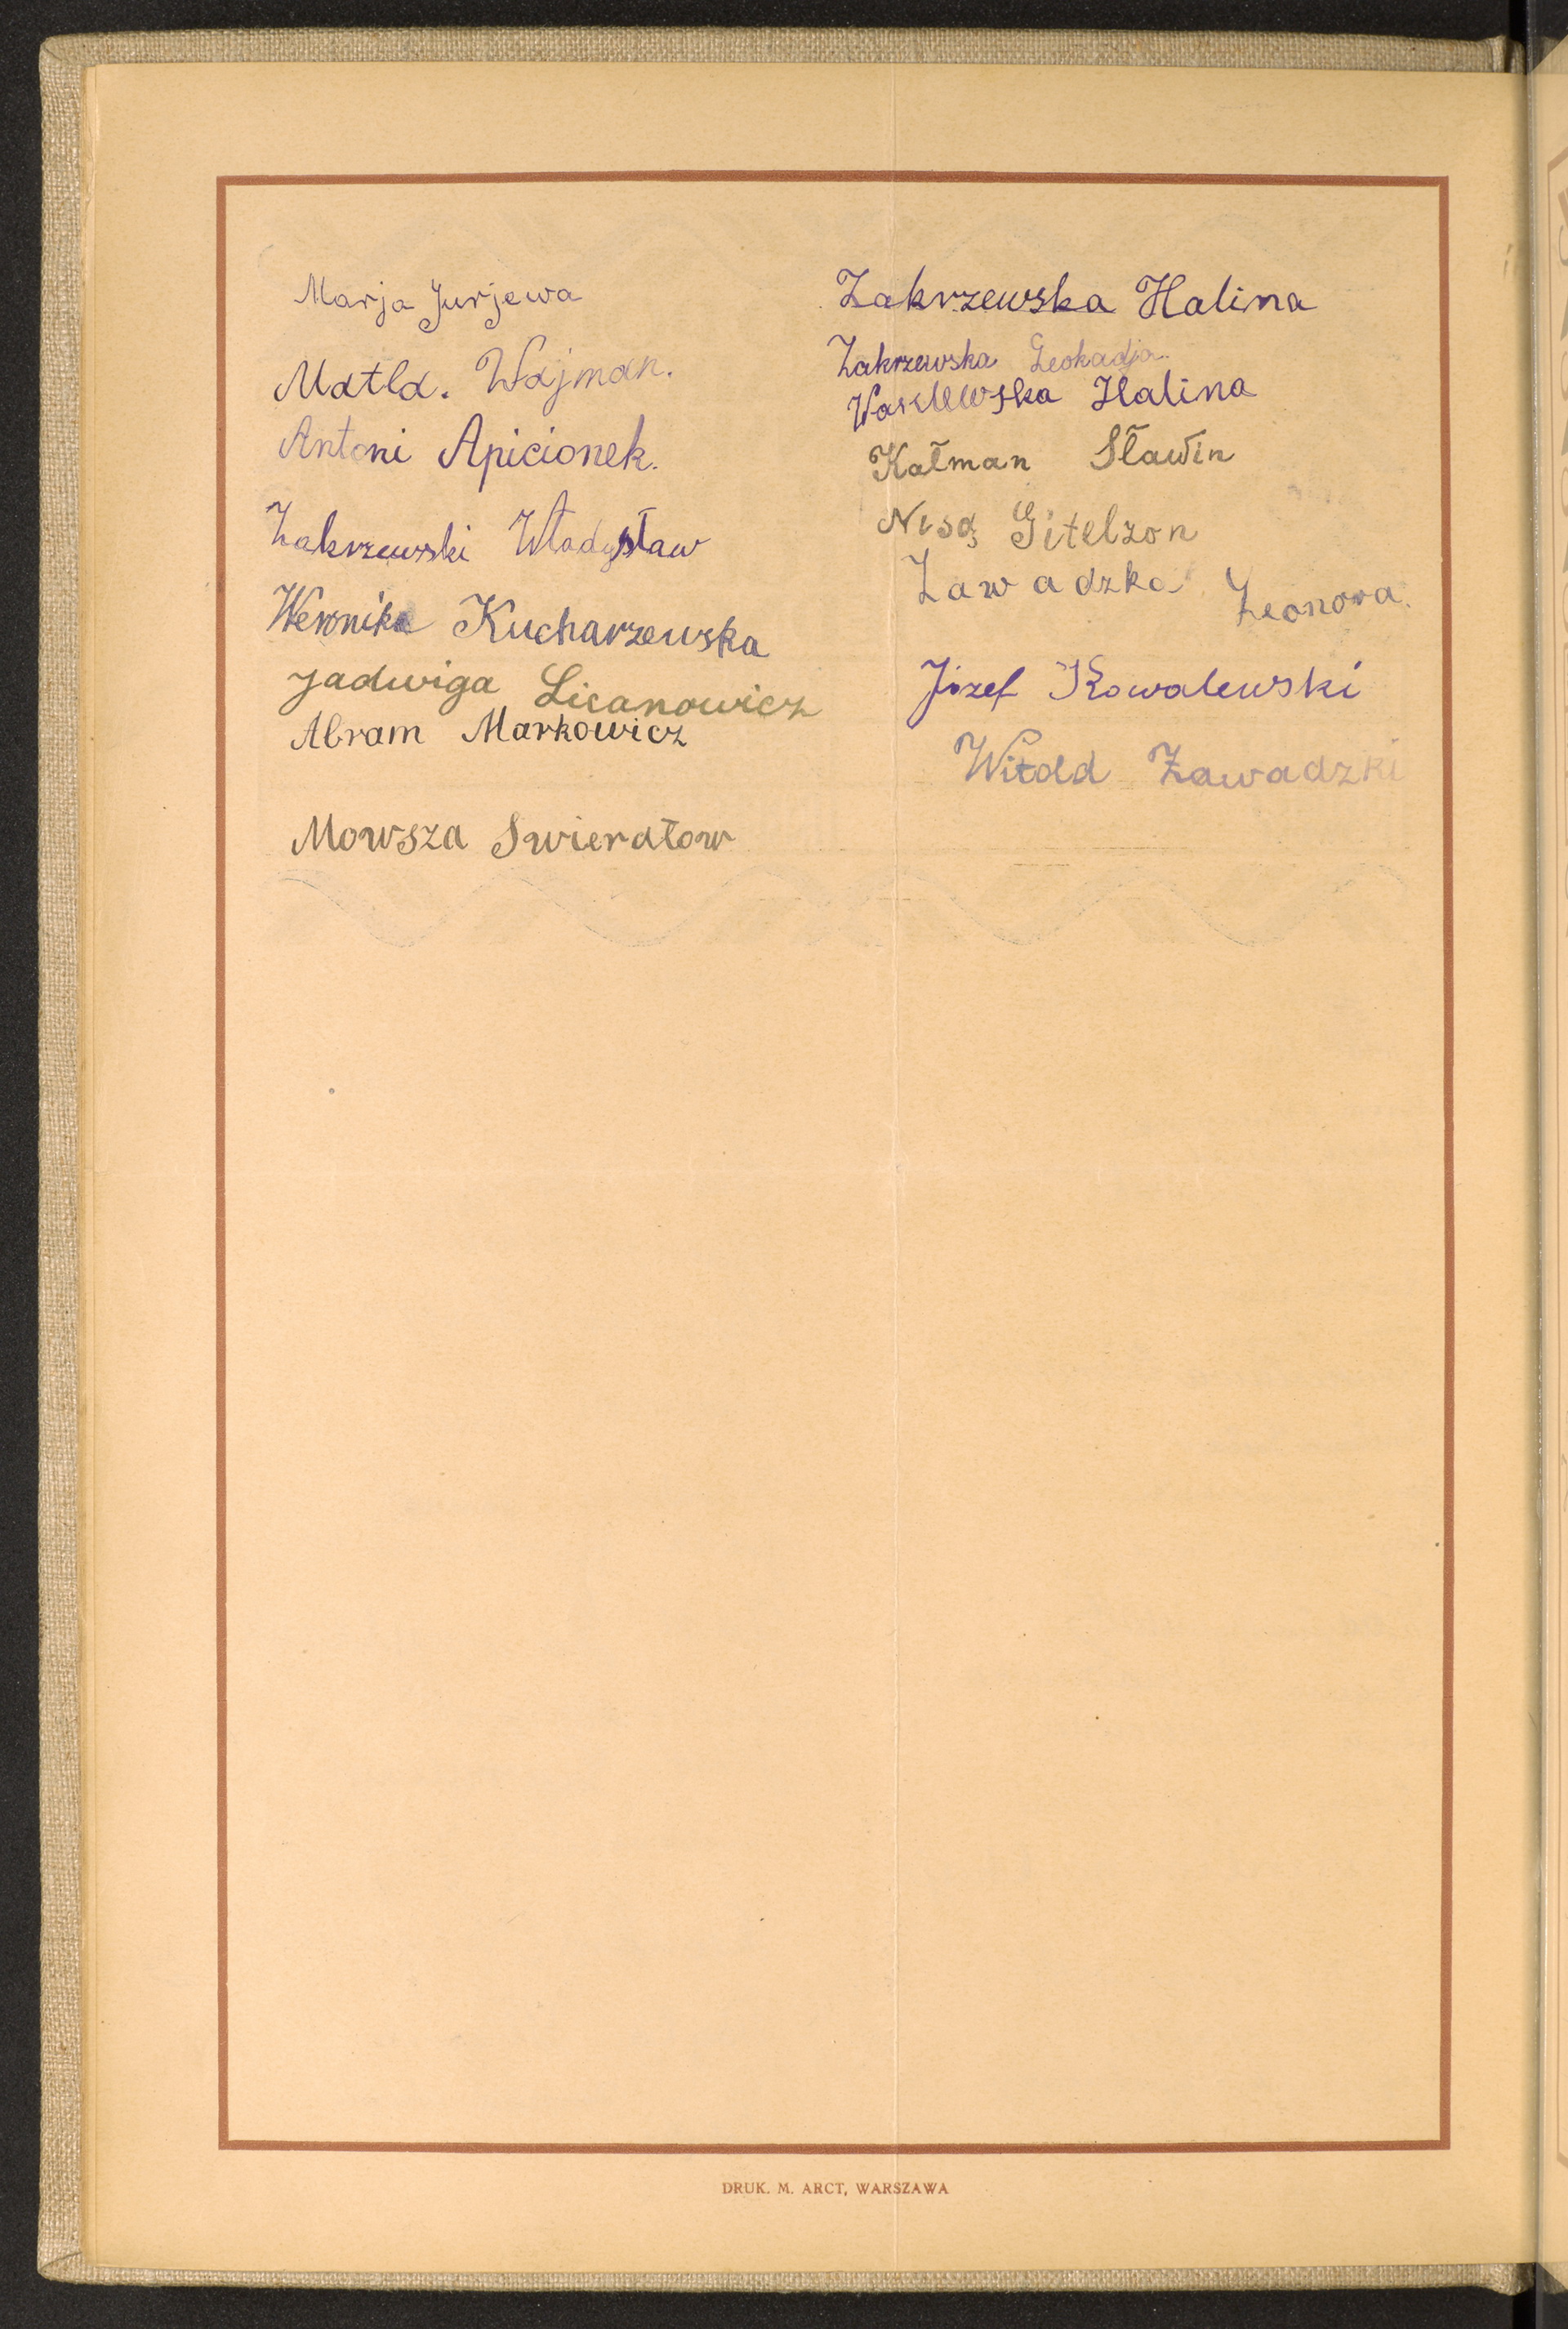 Marja Jurjewa
Matla. Wajman.
Antoni Apicionek.
Zakrzewski Władysław
Weronika Kucharzewska
Jadwiga Licanowicz
Abram Markowicz
Mowsza Swierałow
Zakrzewska Halina
Zakrzewska Leokadja.
Halina
Kałman Sławin
Gitelzon
Zawadzka Leonora.
Józef Kowalewski
Witold Zawadzki
DRUK. M. ARCT, WARSZAWA